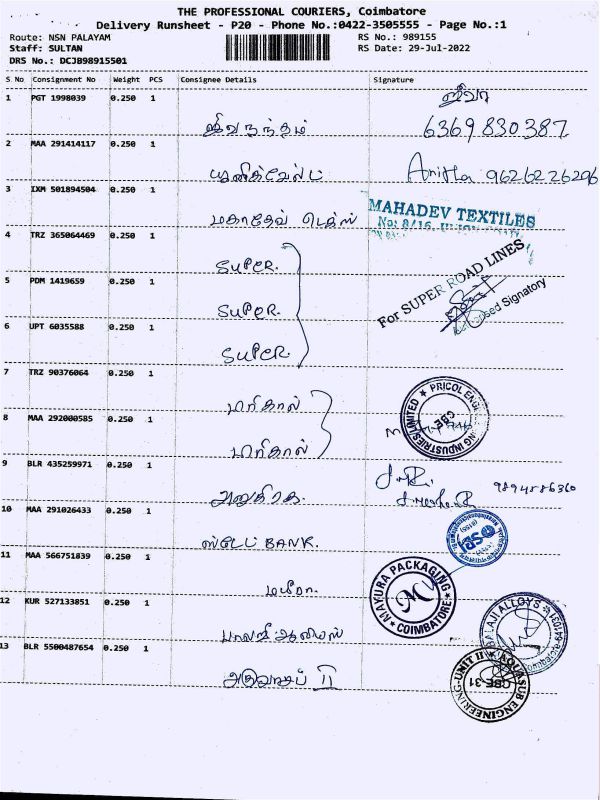 THE PROFESSIONAL COURIERS, Coimbatore
Delivery Runsheet - P20 - Phone No.:0422-3505555 - Page No.:1
Route: NSN PALAYAM
RS No.: 989155
Staff: SULTAN
RS Date: 29-Jul-2022
DRS No.: DCJB98915501
S No Consignment No Weight PCS Consignee Details Signature
1 PGT 1998039 0.250 1 ஜீவா
ஜீவாநந்தம் 6369830387
2 MAA 291414117 0.250 1
யுனிக்வேல்ட் Anitha 9626226296
3 IXM 501894504 0.250 1
மகாதேவ் டெக்ஸ் MAHADEV TEXTILES
No: 8/16,
4 TRZ 365064469 0.250 1
SUPER.
For SUPER ROAD LINES
5 PDM 1419659 0.250 1
SUPER.
Signatory
6 UPT 6035588 0.250 1
SUPER.
7 TRZ 90376064 0.250 1
பிரிகால்
PRICOL ENGINEERING INDUSTRIES LIMITED
CBE
8 MAA 292000585 0.250 1
பிரிகால்
9 BLR 435259971 0.250 1
அனுகிரக. 9894886360
10 MAA 291026433 0.250 1
ஸ்டேட் BANK.
SBI
11 MAA 566751839 0.250 1
மயூரா.
MAYURA PACKAGING
COIMBATORE
12 KUR 527133851 0.250 1
பாலாஜி அலாய்ஸ்
BALAJI ALLOYS
Coimbatore
13 BLR 5500487654 0.250 1
அக்வாசப் II
AQUASUB ENGINEERING-UNIT II
CBE-31